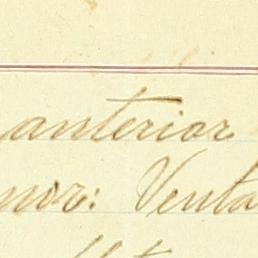 anterior
nor: Venta